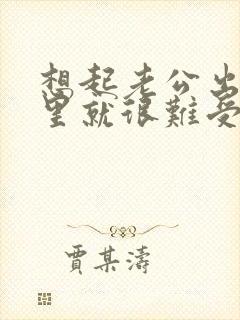 想起老公出
里就很難受
賈某濤